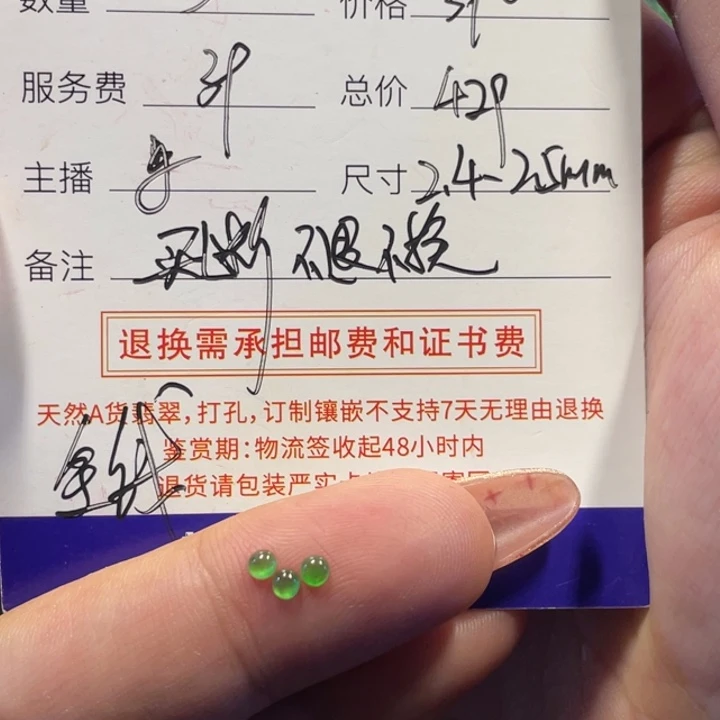 数量 价格
服务费 39 总价 429
主播 尺寸 2.4-2.5mm
备注 买断 不退不换
退换需承担邮费和证书费
天然A货翡翠，打孔，订制镶嵌不支持7天无理由退换
鉴赏期：物流签收起48小时内
退货请包装严实